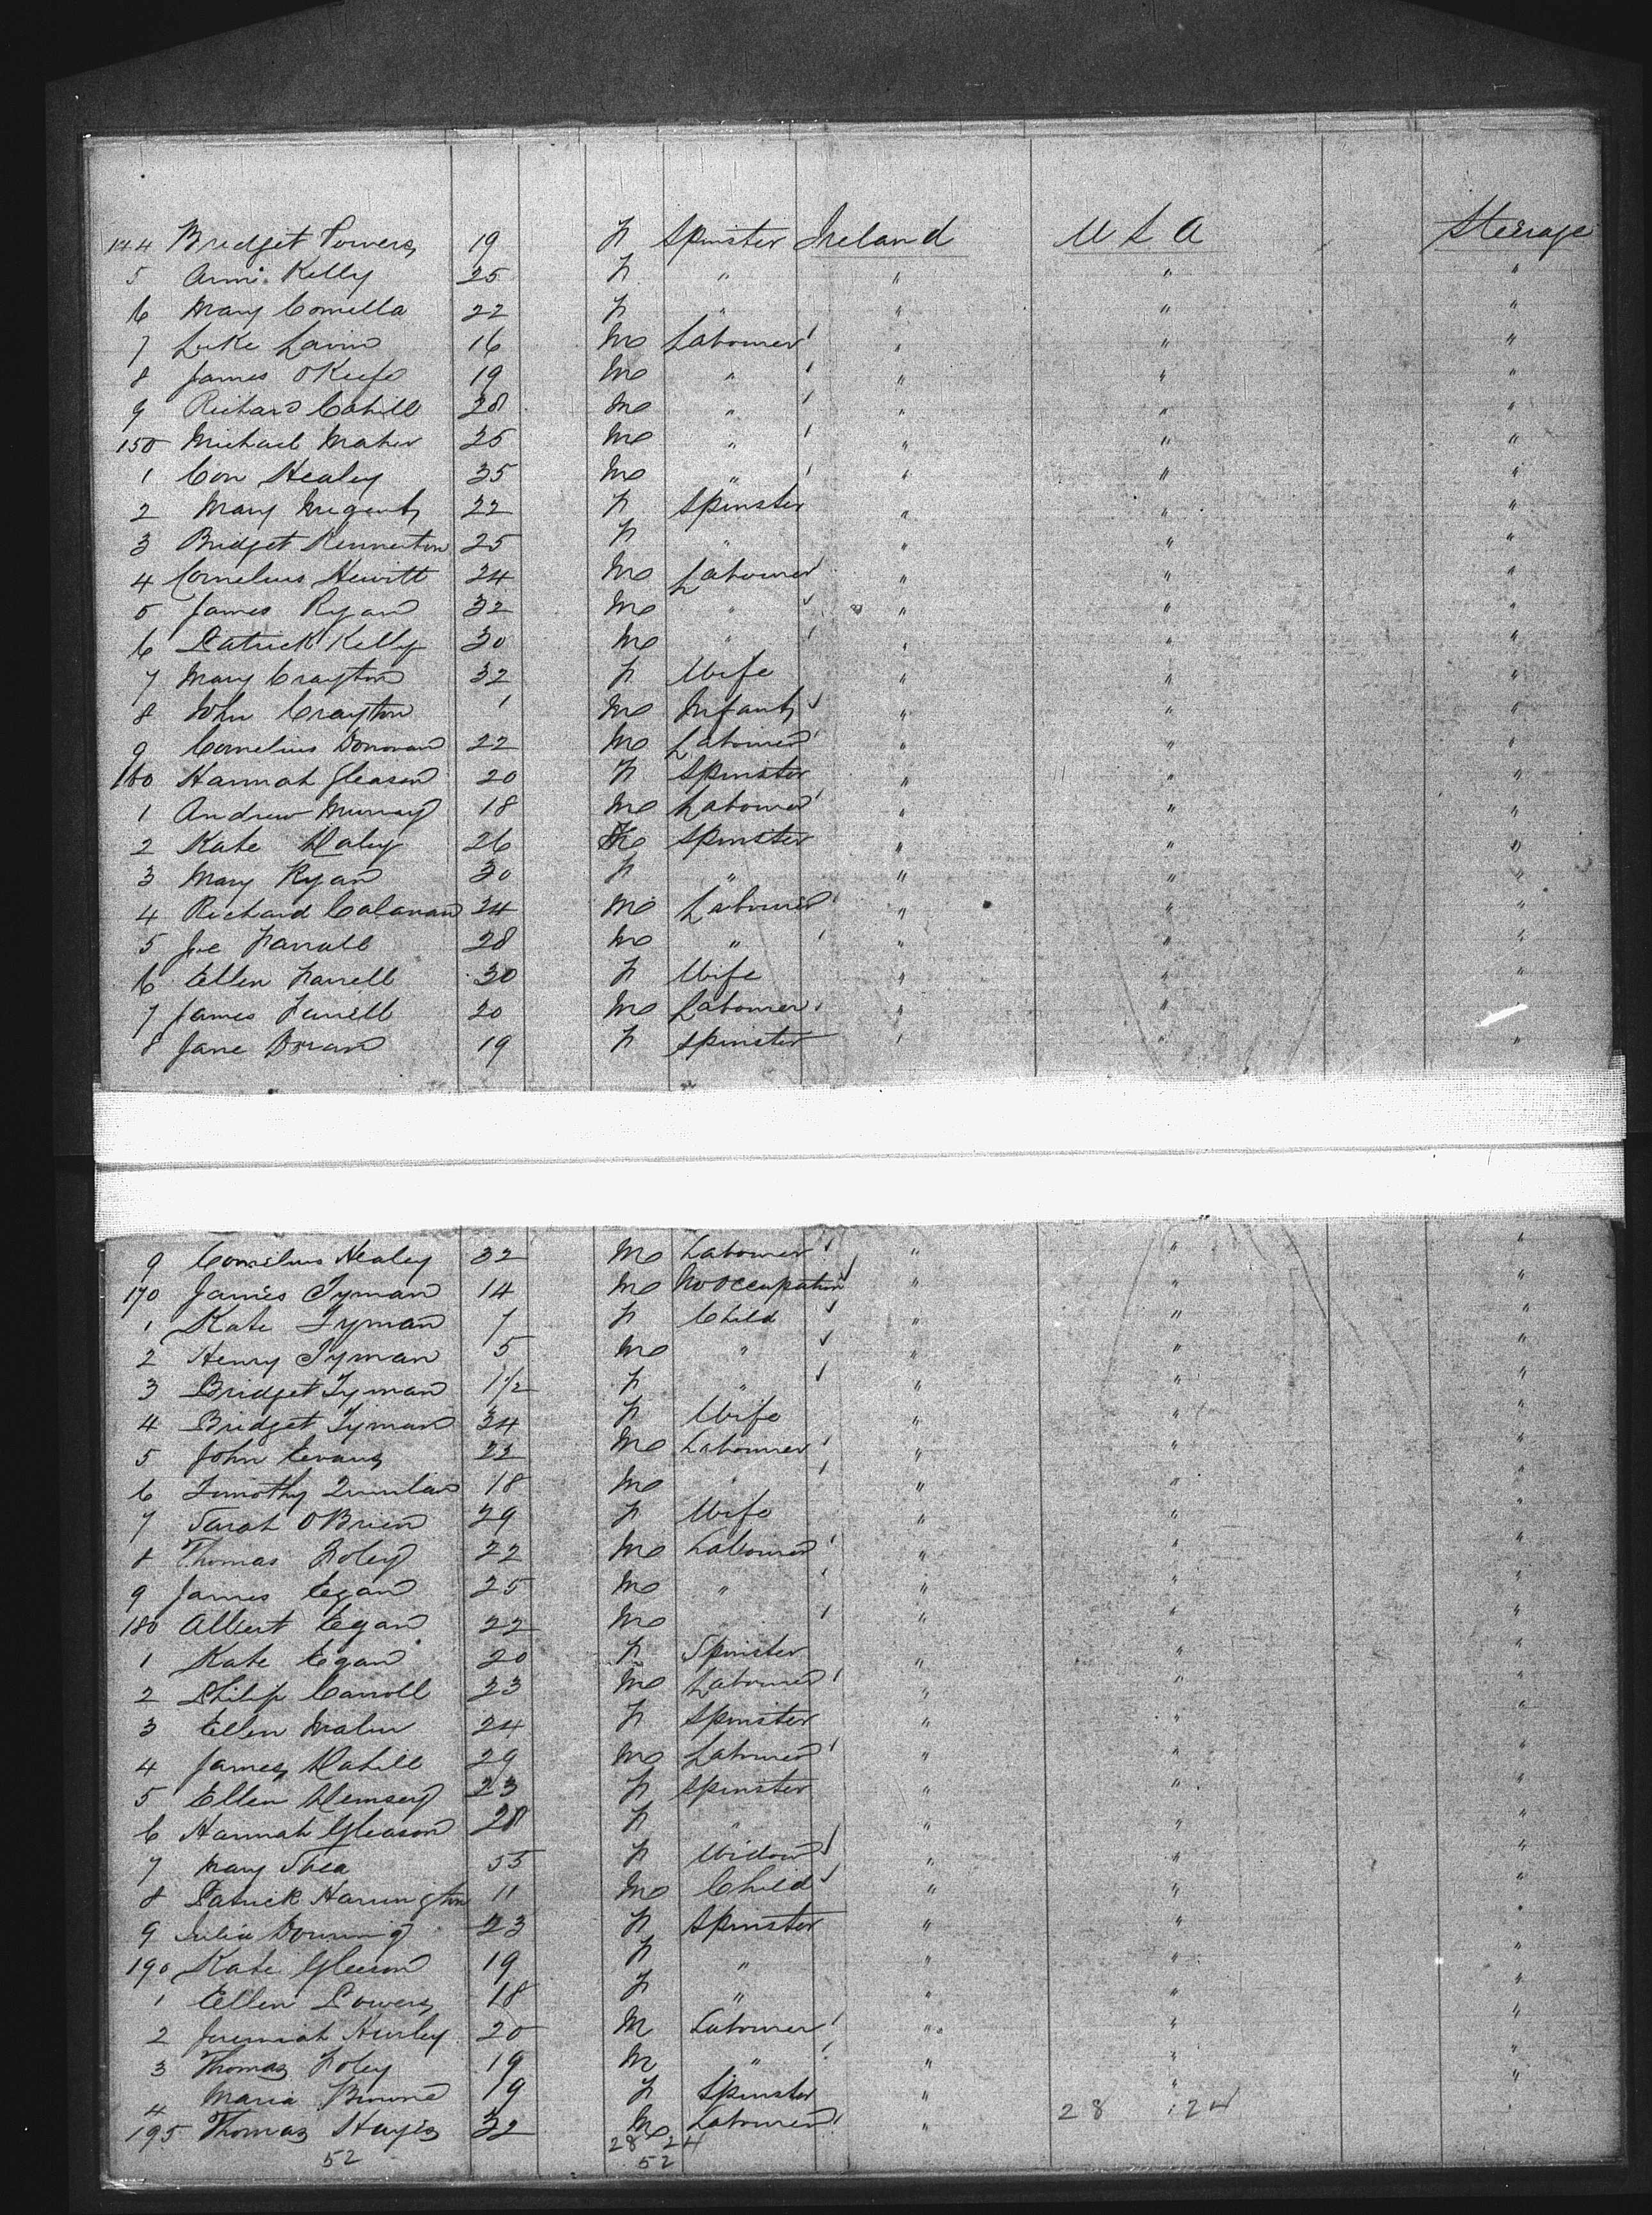 144 Bridget Powers 19 F Spinster Ireland U S A Steerage
5 Annie Kelly 25 F " " " "
6 Mary Comella 22 F " " " "
7 Luke Lavin 16 M Labourer " " "
8 James OKeefe 19 M " " " "
9 Richard Cahill 28 M " " " "
150 Michael Maher 25 M " " " "
1 Con Healey 35 M " " " "
2 Mary 22 F Spinster " " "
3 Bridget 25 F " " " "
4 Cornelius Hewitt 24 M Labourer " " "
5 James Ryan 32 M " " " "
6 Patrick Kelly 30 M " " " "
7 Mary Crayton 32 F Wife " " "
8 John Crayton 1 M Infant " " "
9 Cornelius Donovan 22 M Labourer " " "
160 Hannah Gleason 20 F Spinster " " "
1 Andrew Murray 18 M Labourer " " "
2 Kate Daley 26 Spinster " " "
3 Mary Ryan 30 F " " " "
4 Richard Calanan 24 M Labourer " " "
5 Joe Farrell 28 M " " " "
6 Ellen Farrell 30 F Wife " " "
7 James Farrell 20 M Labourer " " "
8 Jane Doran 19 F Spinster " " "
9 Cornelius Healey 32 M Labourer " " "
170 James Tyman 14 M No Occupation " " "
1 Kate Tyman 7 F Child " " "
2 Henry Tyman 5 M " " " "
3 Bridget Tyman 1/2 F " " " "
4 Bridget Tyman 34 F Wife " " "
5 John Evans 22 M Labourer " " "
6 Timothy Quinlan 18 M " " " "
7 Sarah OBrien 29 F Wife " " "
8 Thomas Foley 22 M Labourer " " "
9 James Egan 25 M " " " "
180 Albert Egan 22 M " " "
1 Kate Egan 20 F Spinster " " "
2 Philip Carroll 23 M Labourer " " "
3 Ellen Maher 24 F Spinster " " "
4 James Cahill 29 M Labourer " " "
5 Ellen Dempsey 23 F Spinster " " "
6 Hannah Gleason 20 F " " " "
7 Mary Shea 55 F Widow " " "
8 Patrick Harrington 11 M Child " " "
9 Julia Downing 23 F Spinster " " "
190 Kate Gleeson 19 F " " " "
1 Ellen Powers 18 F " " " "
2 Jeremiah Hurley 20 M Labourer " " "
3 Thomas Foley 19 M " " " "
4 Maria Browne 19 F Spinster " " "
195 Thomas Hayes 32 M Labourer " 28 24
28 24
52 52